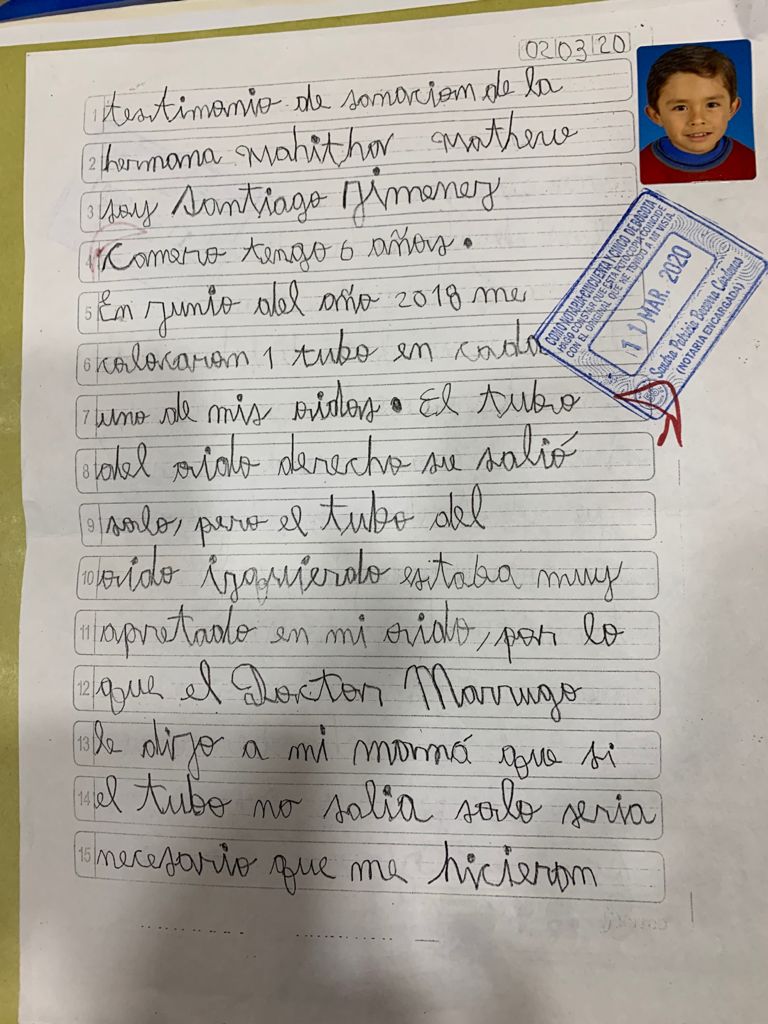 02 03 20
1 testimonio de sanacion de la
2 hermana Mahithar Mathew
3 soy Santiago Jimenez
4 Camero tengo 6 años.
5 En junio del año 2018 me
6 colocaron 1 tubo en cada
7 uno de mis oidos. El tubo
8 del oido derecho se salió
9 solo, pero el tubo del
10 oido izquierdo estaba muy
11 apretado en mi oido, por lo
12 que el Doctor Marrugo
13 le dijo a mi mamá que si
14 el tubo no salia solo seria
15 necesario que me hicieron
COMO NOTARIA CINCUENTA Y CINCO DE BOGOTA
HAGO CONSTAR QUE ESTA FOTOCOPIA COINCIDE
CON EL ORIGINAL QUE HE TENIDO A MI VISTA.
11 MAR. 2020
Sandra Patricia Becerra Cardenas
(NOTARIA ENCARGADA)